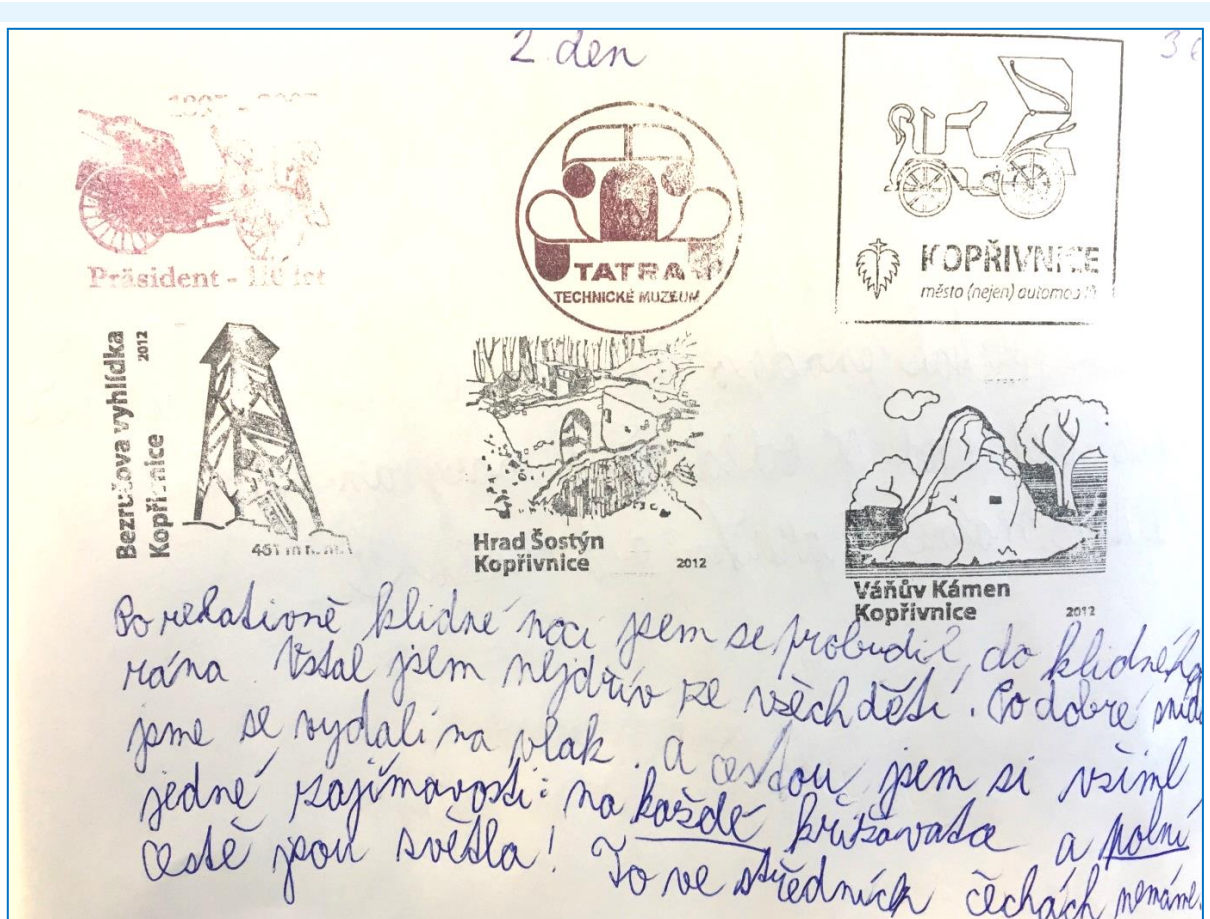 2. den
36
1897 - 2007
Präsident - 110 let
TATRA
TECHNICKÉ MUZEUM
KOPŘIVNICE
město (nejen) automobilů
Bezručova vyhlídka
Kopřivnice
2012
461 m n.m.
Hrad Šostýn
Kopřivnice
2012
Váňův Kámen
Kopřivnice
2012
Po relativně klidné noci jsem se probudil, do klidného
rána. Vstal jsem nejdřív ze všech dětí. Po dobré sníd
jsme se vydali na vlak. A cestou jsem si všiml
jedné zajímavosti: na každé křižovatce a polní
cestě jsou světla! To ve středních čechách nemáme.